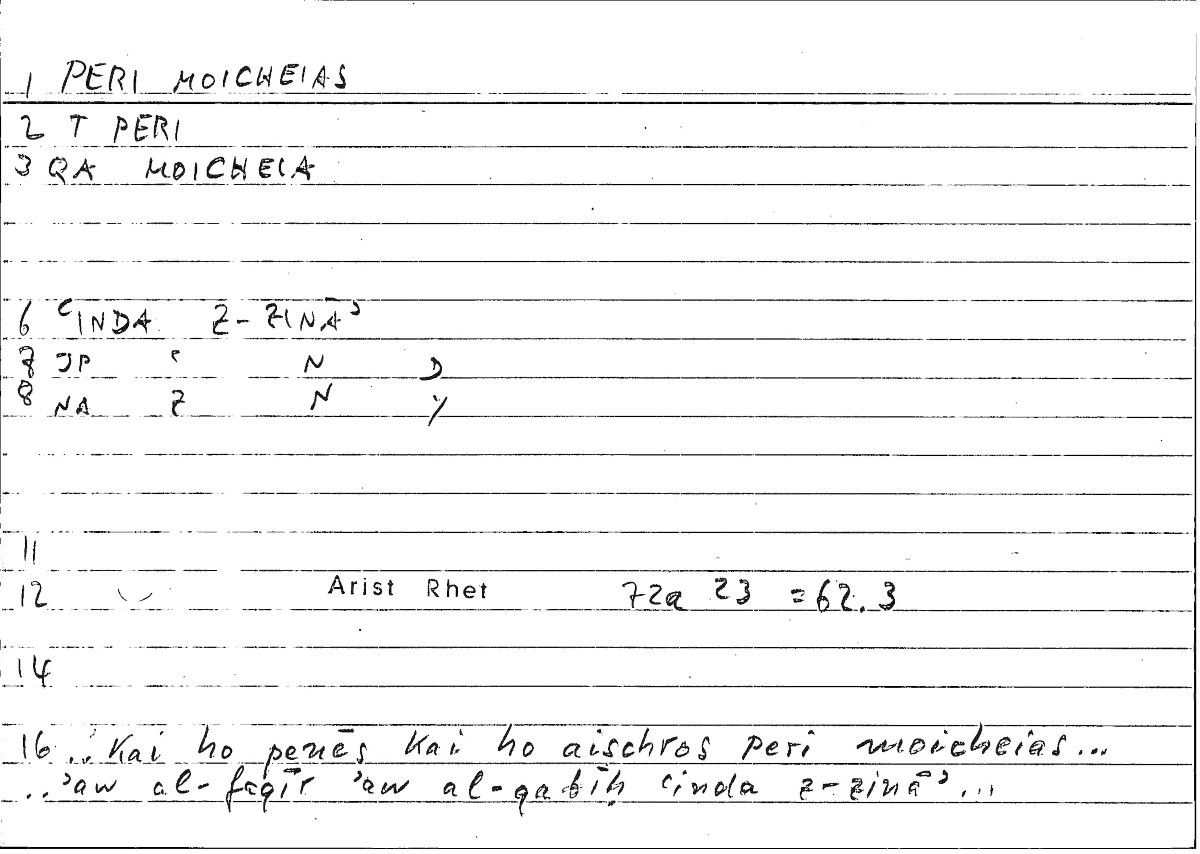 1 PERI MOICHEIAS
2 T PERI
3 QA MOICHEIA
6 ʿINDA Z-ZINĀʾ
7 JP ʿ N D
8 NA Z N Y
11
12 Arist Rhet 72a 23 = 62.3
14
16 ..kai ho penēs kai ho aischros peri moicheias...
..ʾaw al-faqīr ʾaw al-qabīḥ ʿinda z-zināʾ...